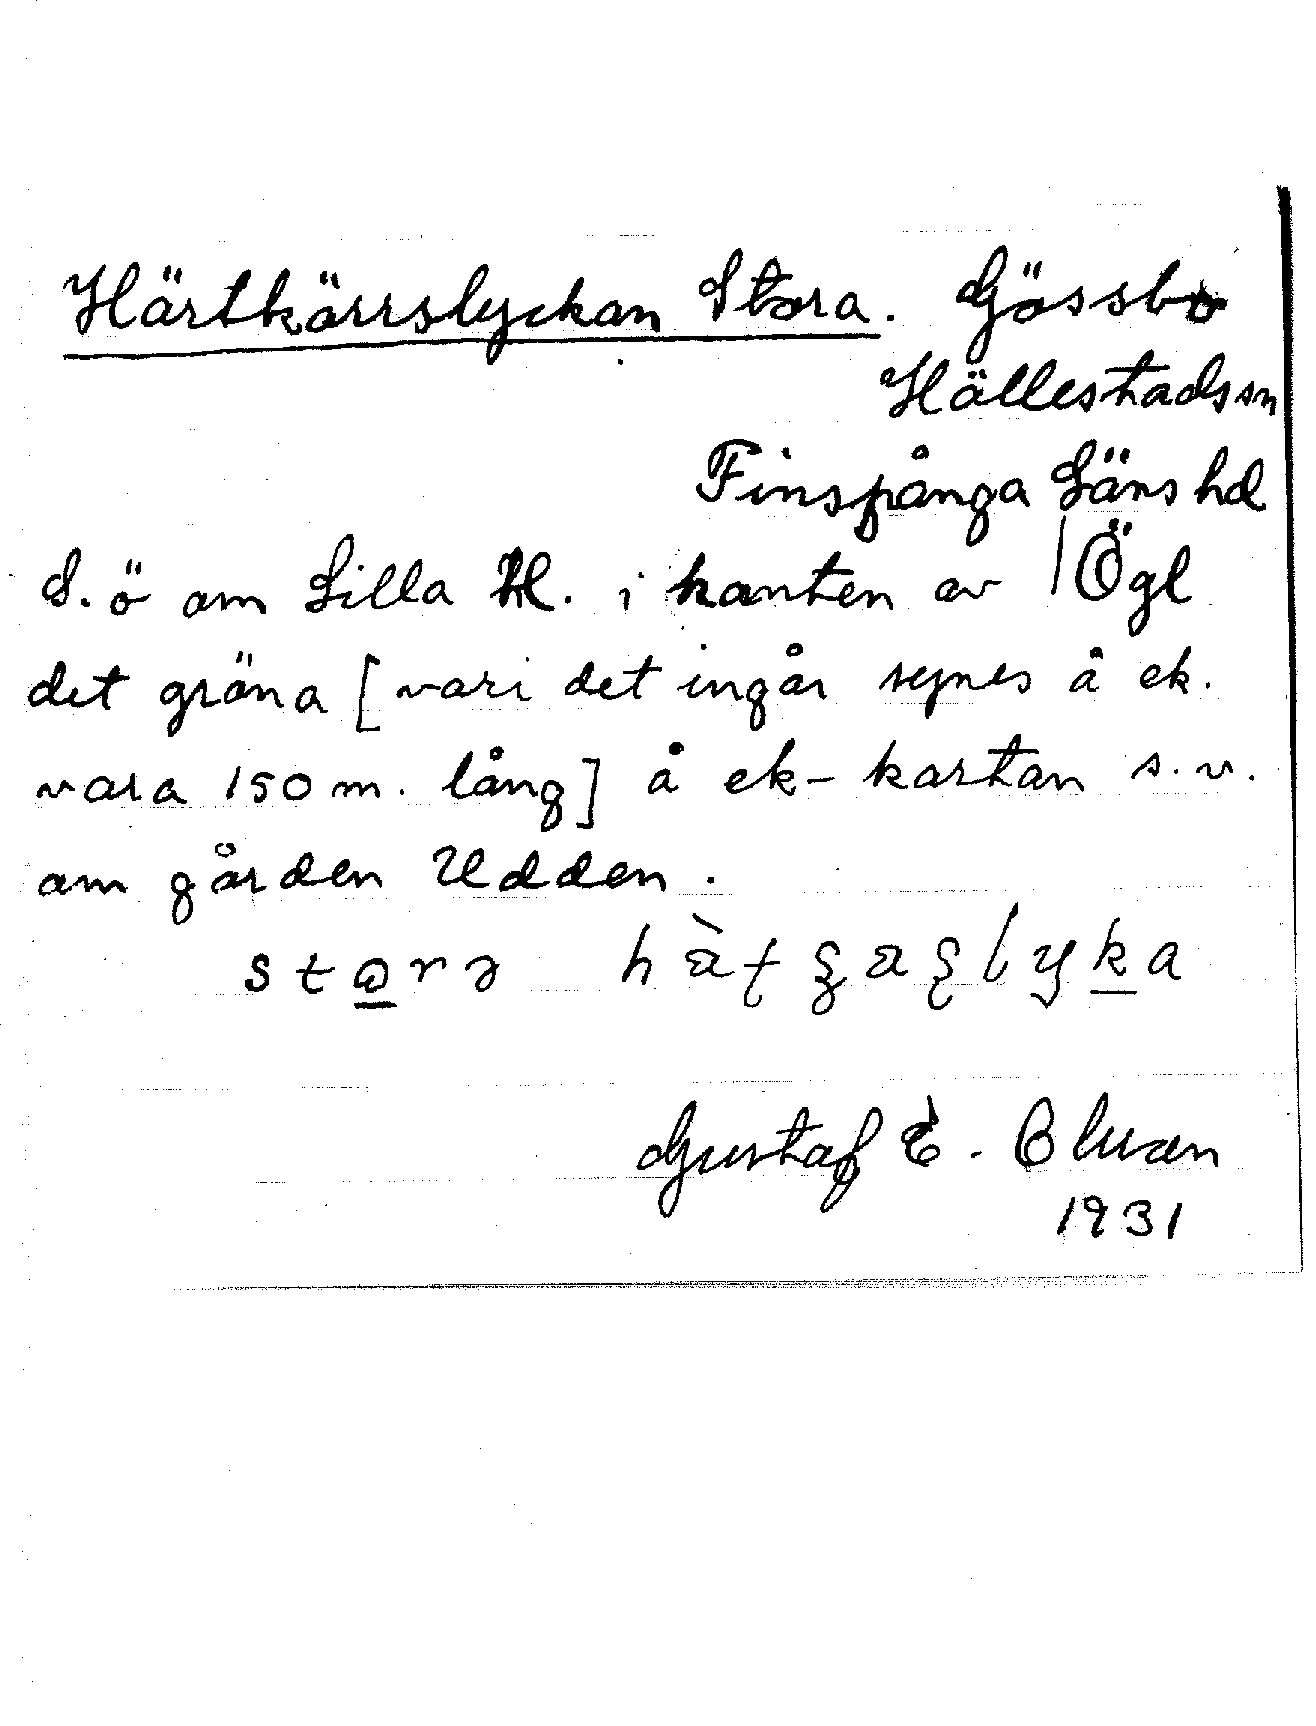 Härtkärrslyckan Stora. Gössbo
Hällestads sn
Finspånga Läns hd
S. ö om Lilla H. i kanten av | Ögl
det gröna [vari det ingår synes å ek.
vara 150 m. lång] å ek-kartan s.v.
om gården Udden.
Gustaf E.
1931